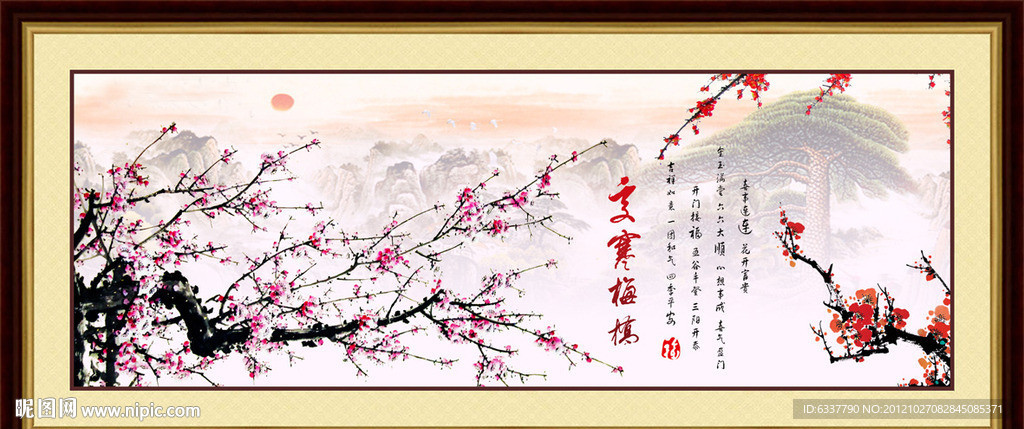 喜事连连 花开富贵
金玉满堂 六六大顺 心想事成 喜气盈门
开门接福 五谷丰登 三阳开泰
吉祥如意 一团和气 四季平安
寒梅
昵图网 www.nipic.com
ID:6337790 NO:20121027082845085371